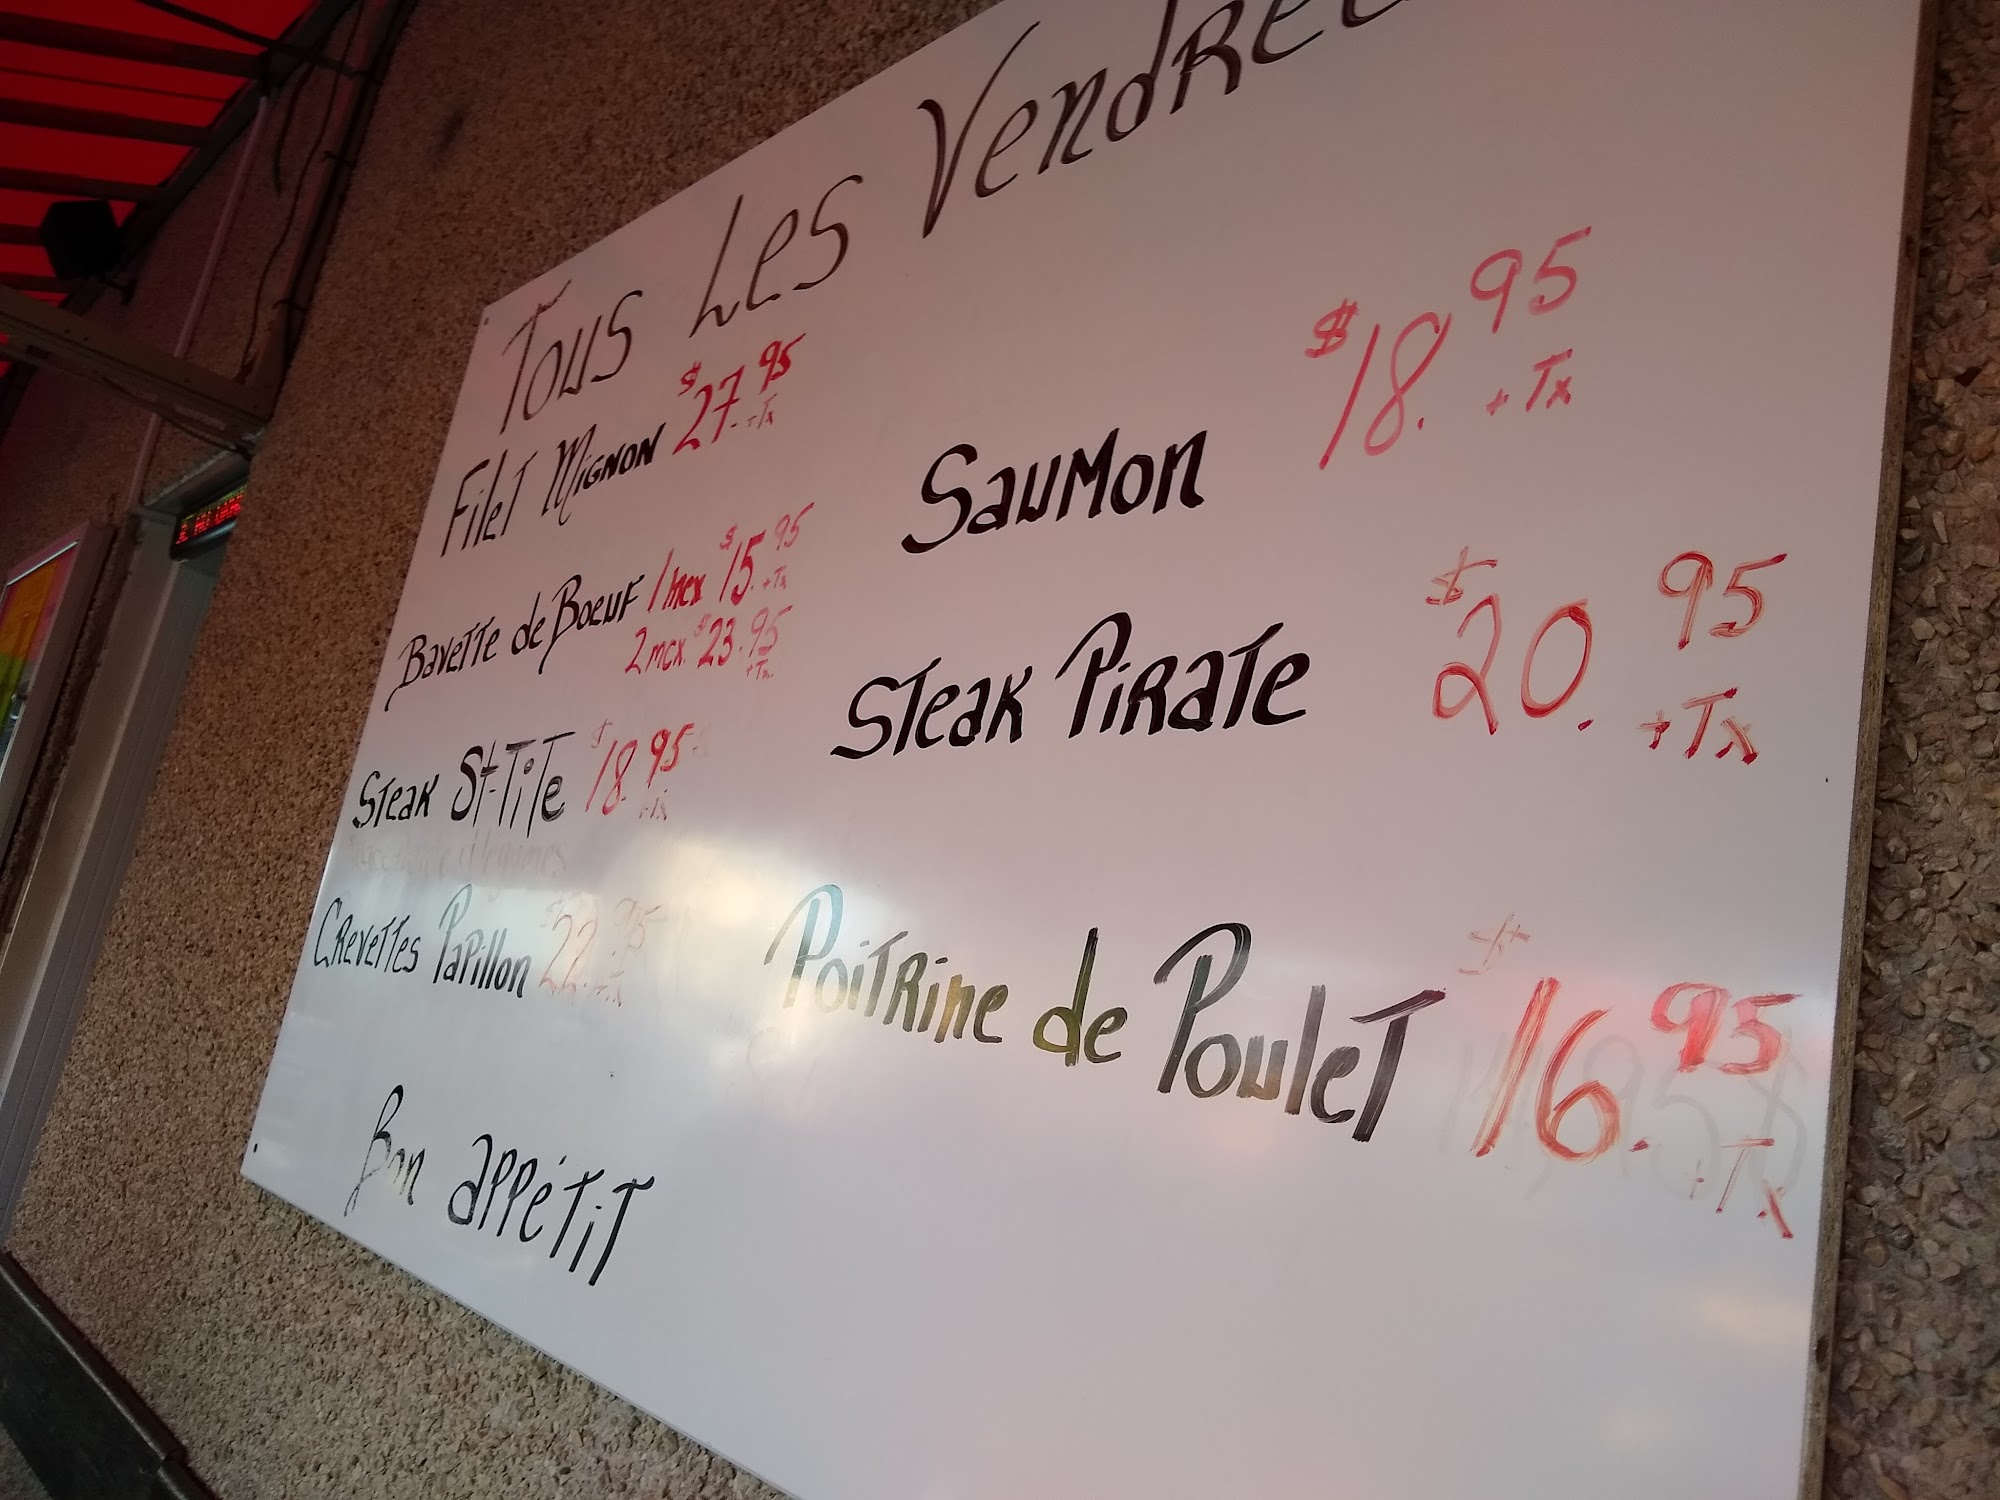 Tous Les Vendre
Filet Mignon $27.95 +Tx
Bavette de Boeuf 1 mcx $15.95 +Tx
2 mcx. $23.95 +Tx.
Steak St-Tite $18.95 +Tx
Crevettes Papillon $22.95 +Tx
Bon appétit
Saumon $18.95 +Tx
Steak Pirate $20.95 +Tx
Poitrine de Poulet $16.95 +Tx